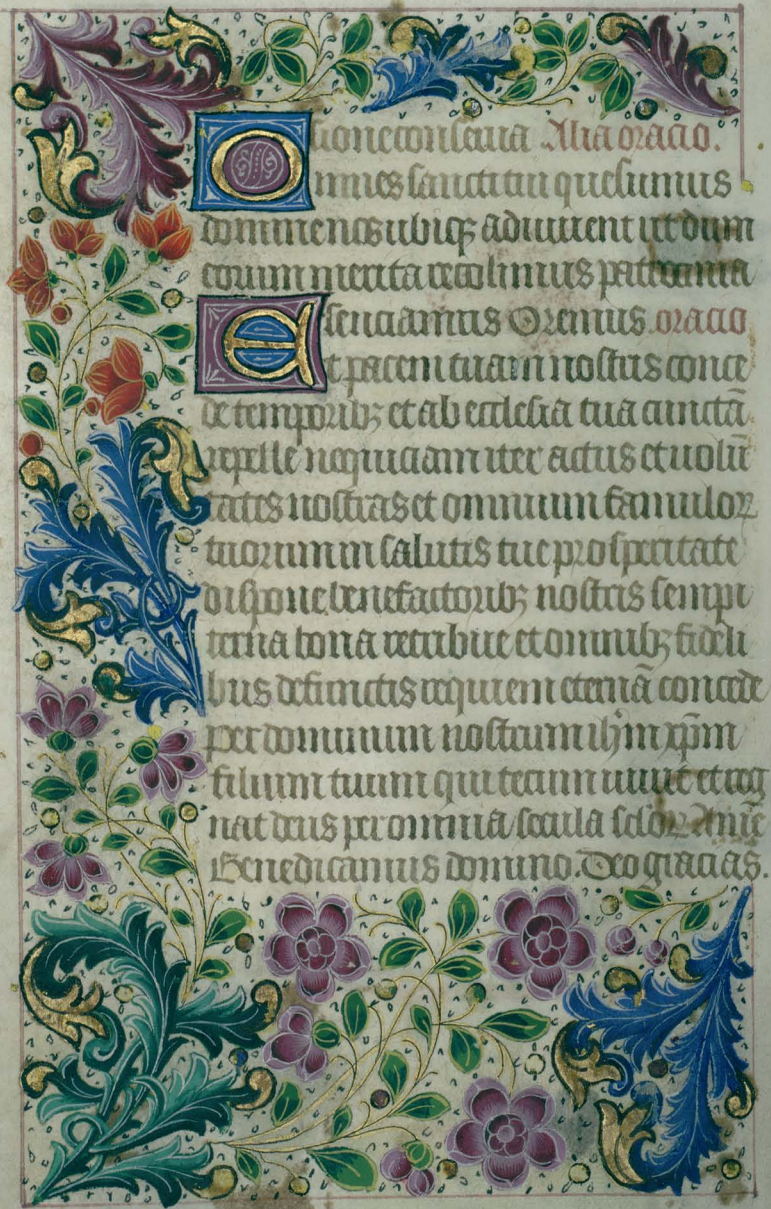 tione conserua Alia oracio.
Omnes sancti tui quesumus
domine nos ubiqꝫ adiuuent ut dum
eorum merita recolimus patrocinia
senciamus Oremus. oracio
Et pacem tuam nostris conce
de temporibꝫ et ab ecclesia tua cunctā
repelle nequiciam iter actus et uolū
tates nostras et omnium famuloꝝ
tuorum in salutis tue prosperitate
dispone. benefactoribꝫ nostris sempi
terna bona retribue et omnibꝫ fideli
bus defunctis requiem eternā concede
per dominum nostrum ihm xp̄m
filium tuum qui tecum uiuit et reg
nat deus per omnia secula scloꝝ Amē
Benedicamus domino. Deo gracias.